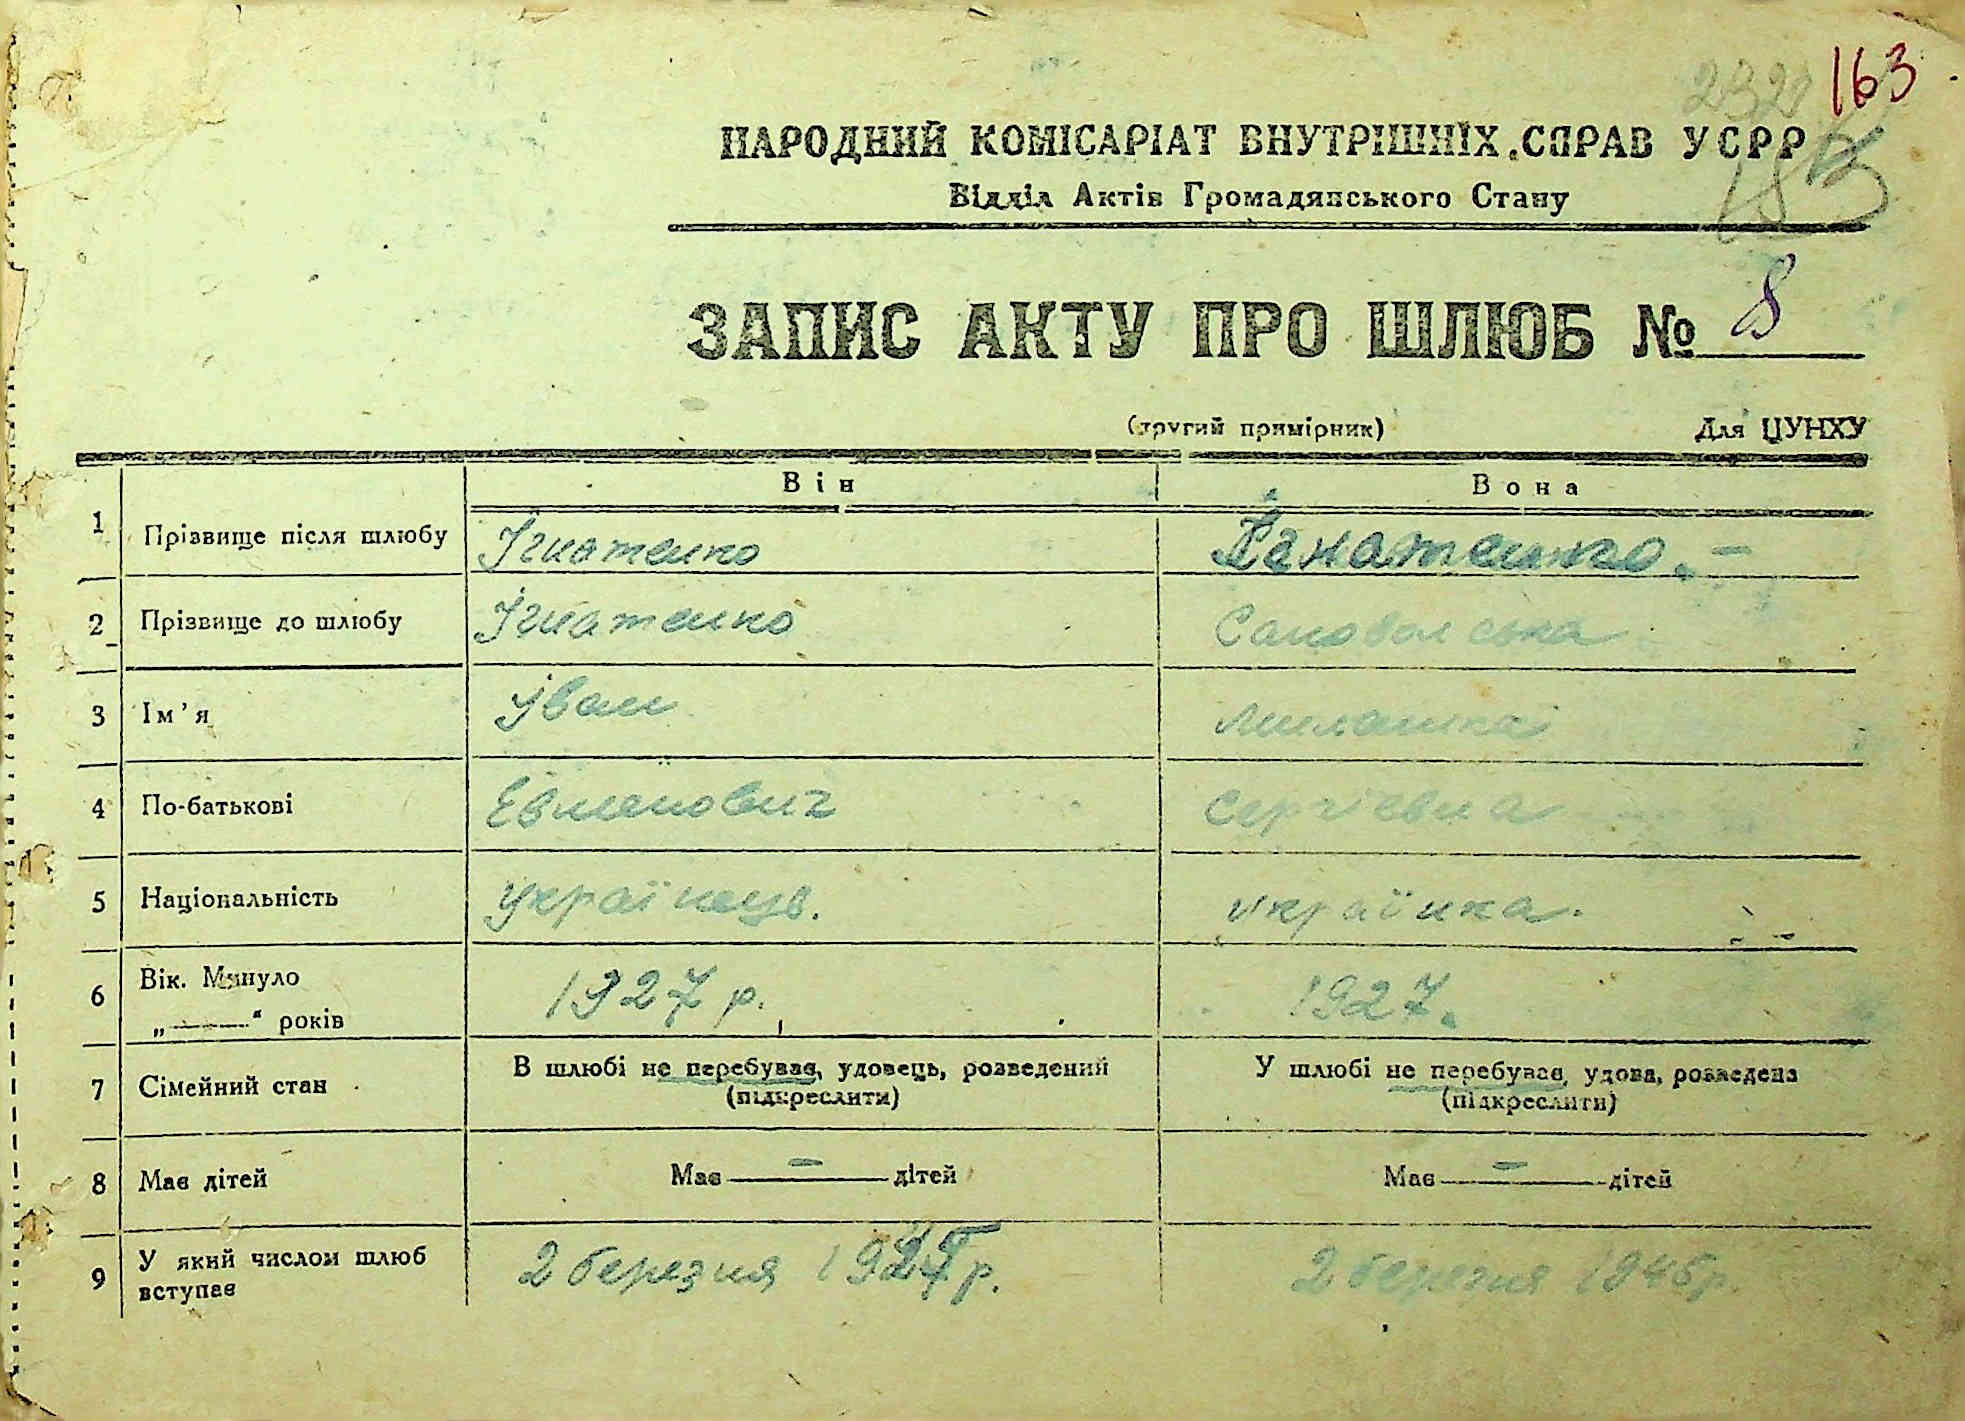 163
232
НАРОДНИЙ КОМІСАРІАТ ВНУТРІШНІХ СПРАВ УСРР
Відділ Актів Громадянського Стану
ЗАПИС АКТУ ПРО ШЛЮБ № 8
(другий примірник) Для ЦУНХУ
Він Вона
1 Прізвище після шлюбу Ігнатенко Ігнатенко. –
2 Прізвище до шлюбу Ігнатенко
3 Ім'я Іван Милашка
4 По-батькові Сергієвна
5 Національність українець. українка.
6 Вік. Минуло 1927 р. 1927.
„———“ років
7 Сімейний стан В шлюбі не перебував, удовець, розведений У шлюбі не перебував, удова, розведена
(підкреслити) (підкреслити)
8 Має дітей Має — дітей Має — дітей
9 У який числом шлюб 2 березня р. 2 березня 1946 р.
вступає